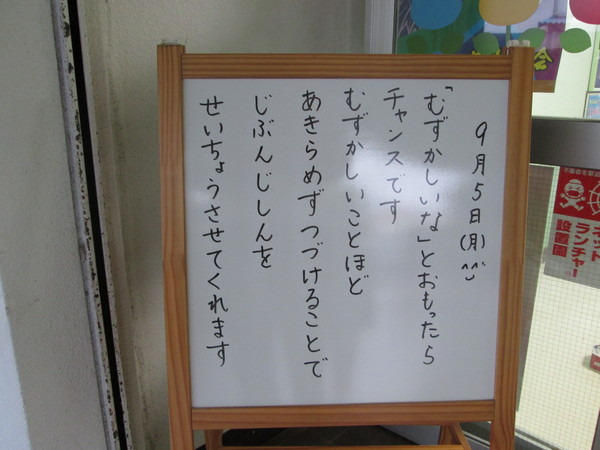 9月5日(月)^^
「むずかしいな」とおもったら
チャンスです
むずかしいことほど
あきらめずつづけることで
じぶんじしんを
せいちょうさせてくれます
会
ネット
ランチャー
設置園